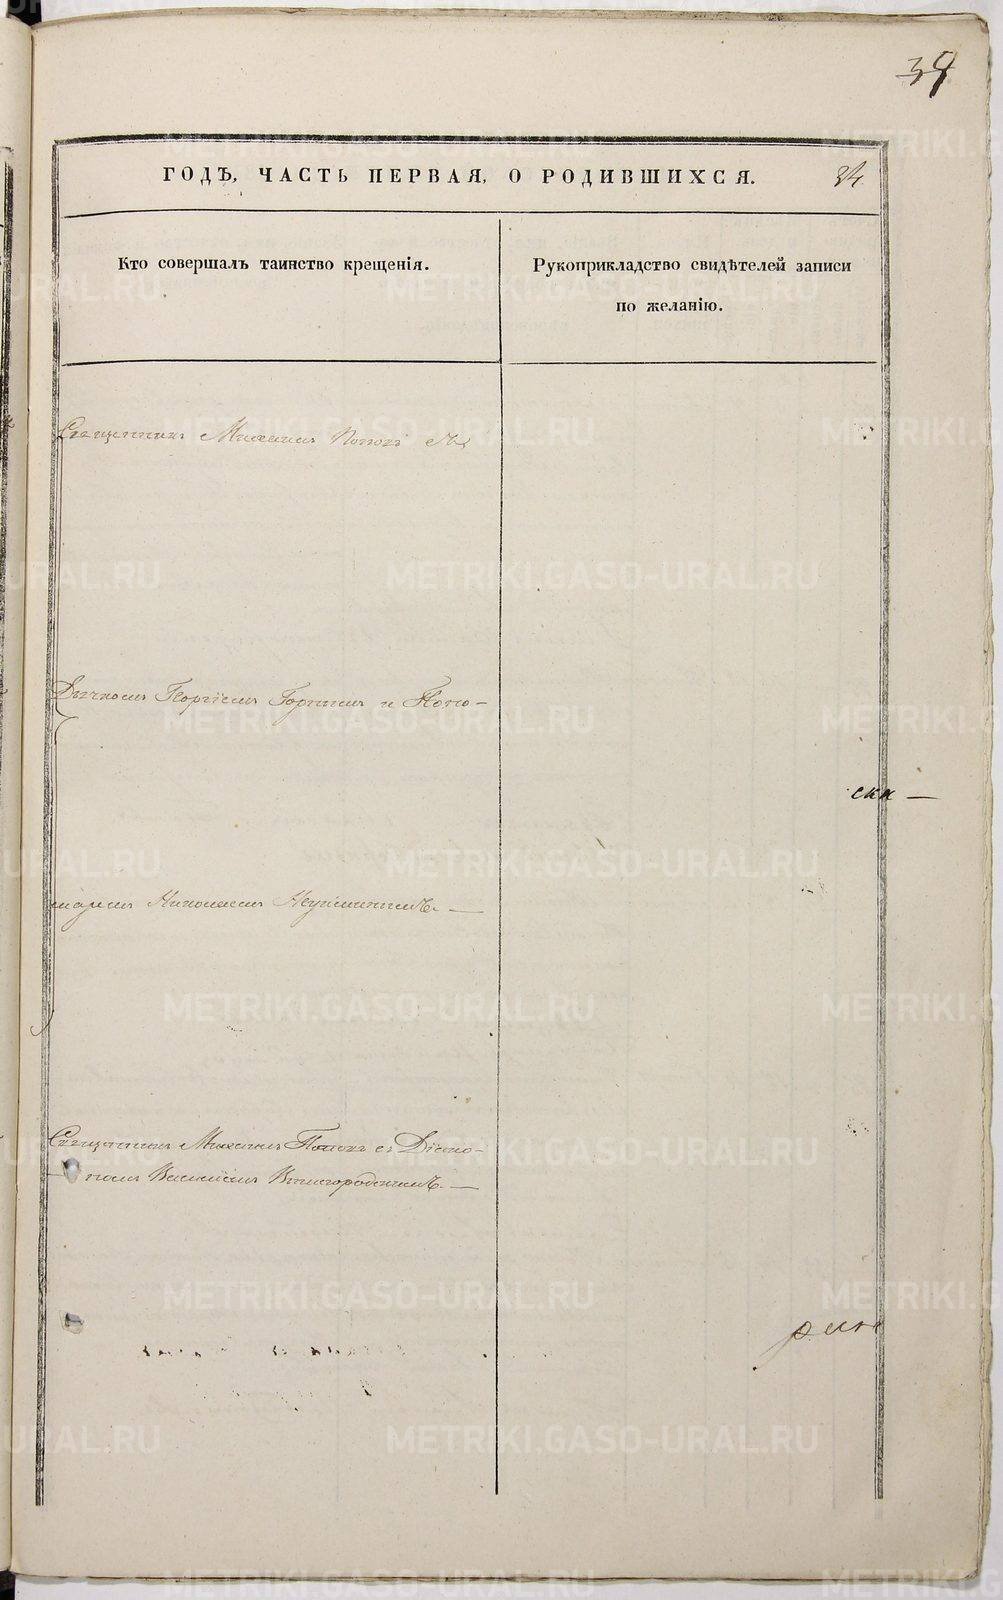 34
ГОДѢ, ЧАСТЬ ПЕРВАЯ, О РОДИВШИХСЯ.
34
Кто совершалъ таинство крещенія.
Рукоприкладство свидѣтелей записи
по желанію.
Священникъ Михаилъ Поповъ съ
Дьячкомъ Георгіемъ Горнымъ и Поно-
ска —
маремъ Николаемъ Неуйминымъ. —
Священникъ Михаилъ Поповъ съ Діако-
номъ Василіемъ Вышегородскимъ. —
METRIKI.GASO-URAL.RU